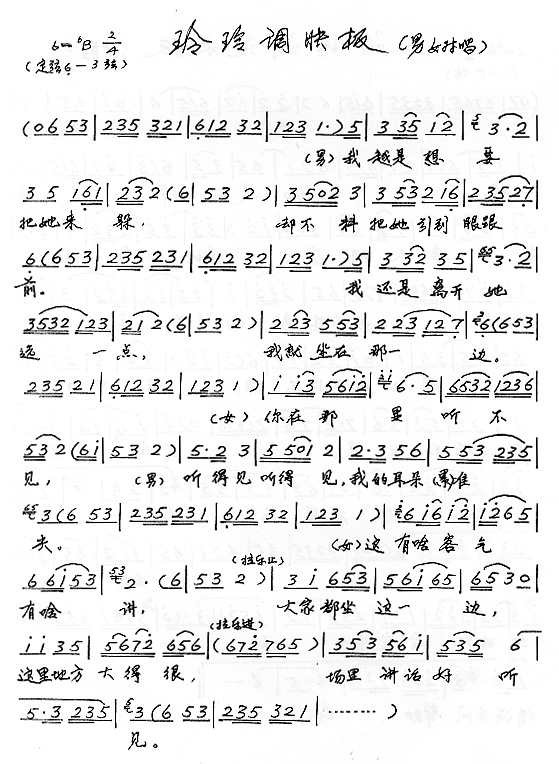 6=ᵇB 2/4 玲玲调快板 (男女对唱)
(定弦6-3弦)
(06 53 | 235 321 | 612 32 | 123 1·) 5 | 3 35 12 | 3·2 |
(男) 我 越是 想 要
3 5 161 | 232 (6 | 53 2) | 3502 3 | 3 532 16 | 23527 |
把她来 躲, 却不 料 把她 引到 眼跟
6(653 | 235 231 | 612 32 | 123 1·) 5 | 3 32 35 | 3·2 |
前。 我 还是 离开 她
3532 123 | 212 (6 | 53 2) | 2 23 553 | 223 127 | 6(653 |
远 一 点, 我就 坐在 那一 边。
235 21 | 612 32 | 123 1) | i i3 5612 | 6·5 | 6532 1236 |
(女) 你在 那 里 听 不
532 (6i | 53 2) | 5·2 3 | 5 501 2 | 2·3 56 | 553 235 |
见, (男) 听 得见 听得 见, 我的 耳朵 准
3(6 53 | 235 231 | 612 32 | 123 1) | 6 i6 i2 | i265 |
失。 (女) 这 有啥 客 气
6 6i53 | 2·(6 | 53 2) | 3 i 653 | 56i 65 | 6530 |
有啥 讲, (拉乐止) 大家 都坐 这一 边,
i i 35 | 5672 656 | (672765) | 353 56i | 535 6 |
这里地方 大得 很, (拉乐进) 场里 讲话 好 听
5·3 235 | 3(6 53 | 235 321 | ········ )
见。